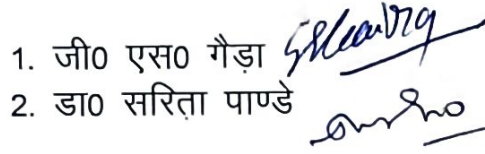 1. जी0 एस0 गैड़ा
2. डा0 सरिता पाण्डे